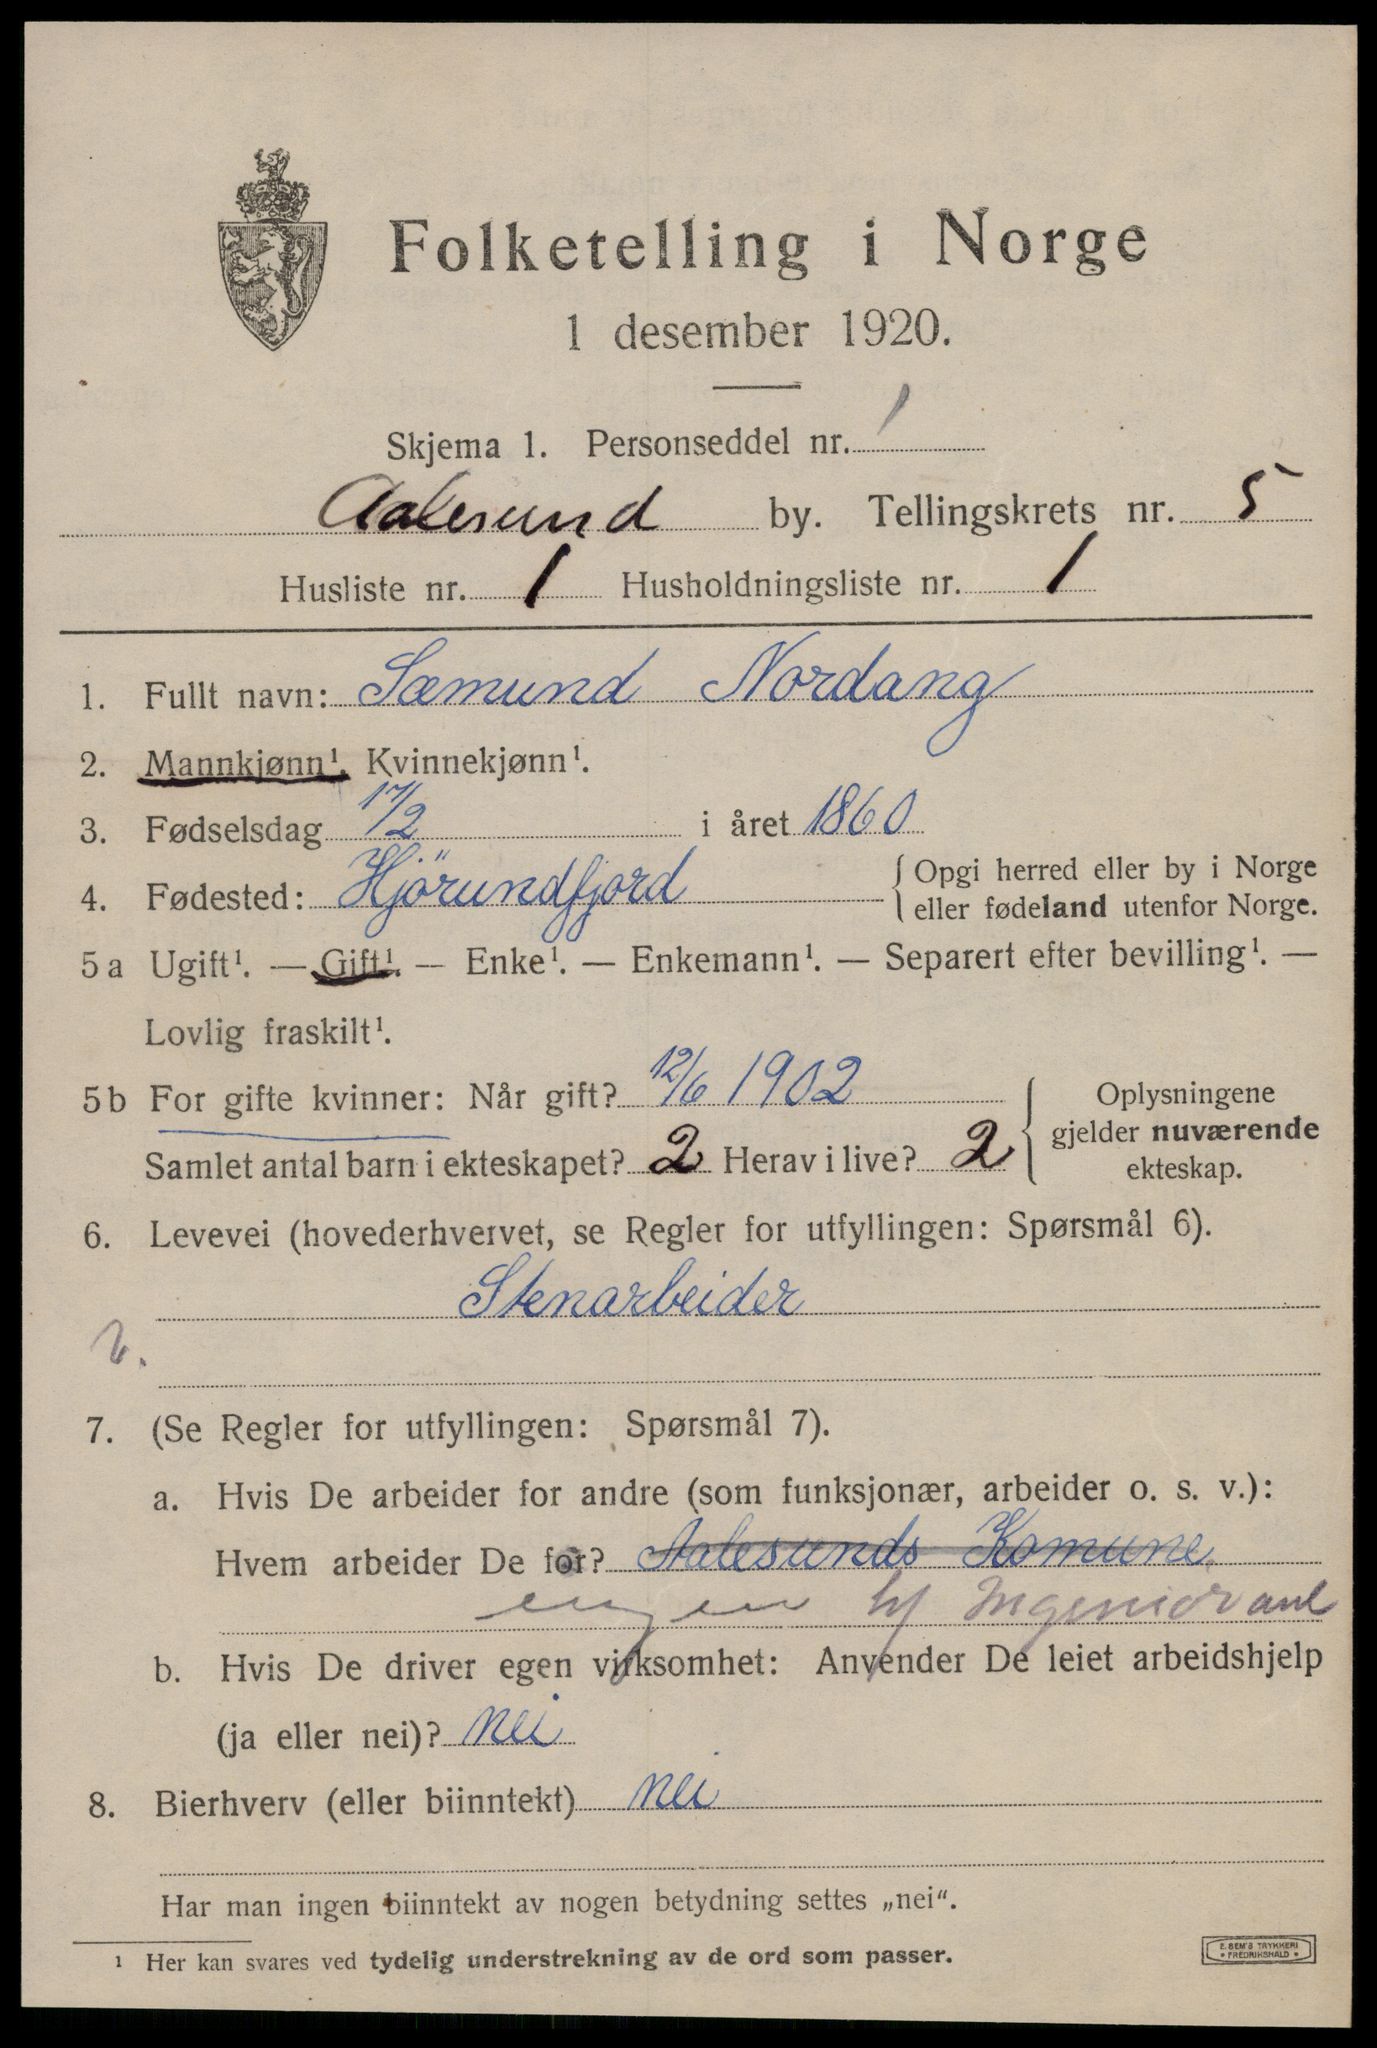 Folketelling i Norge
1 desember 1920.
Skjema 1. Personseddel nr. 1
Aalesund by. Tellingskrets nr. 5
Husliste nr. 1 Husholdningsliste nr. 1
1. Fullt navn: Sæmund Nordang
2. Mannkjønn¹. Kvinnekjønn¹.
3. Fødselsdag 17/2 i året 1860
4. Fødested: Hjörundfjord { Opgi herred eller by i Norge
eller fødeland utenfor Norge.
5a Ugift¹. — Gift¹. — Enke¹. — Enkemann¹. — Separert efter bevilling¹. —
Lovlig fraskilt¹.
5b For gifte kvinner: Når gift? 12/6 1902
Samlet antal barn i ekteskapet? 2 Herav i live? 2
Oplysningene
gjelder nuværende
ekteskap.
6. Levevei (hovederhvervet, se Regler for utfyllingen: Spørsmål 6).
Stenarbeider
7. (Se Regler for utfyllingen: Spørsmål 7).
a. Hvis De arbeider for andre (som funksjonær, arbeider o. s. v.):
Hvem arbeider De for? Aalesunds Komune
Ingeniør
b. Hvis De driver egen virksomhet: Anvender De leiet arbeidshjelp
(ja eller nei)? nei
8. Bierhverv (eller biinntekt) nei
Har man ingen biinntekt av nogen betydning settes „nei“.
¹ Her kan svares ved tydelig understrekning av de ord som passer.
E. SEM'S TRYKKERI
* FREDRIKSHALD *